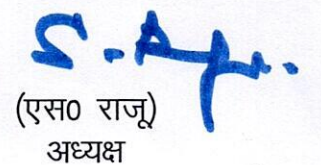 (एस0 राजू)
अध्यक्ष